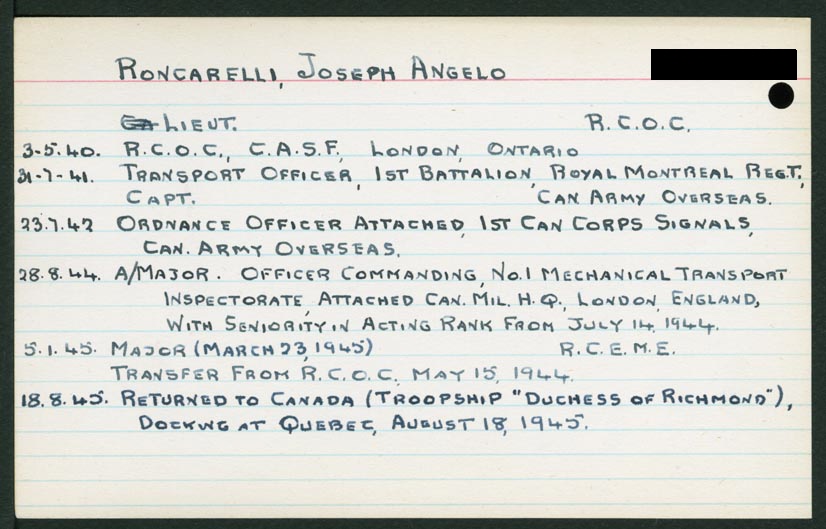 RONCARELLI, JOSEPH ANGELO
LIEUT. R.C.O.C.
3-5.40. R.C.O.C., C.A.S.F., LONDON, ONTARIO
31-7-41. TRANSPORT OFFICER, 1ST BATTALION, ROYAL MONTREAL REGT,
CAPT. CAN ARMY OVERSEAS.
23.7.42 ORDNANCE OFFICER ATTACHED, 1ST CAN CORPS SIGNALS,
CAN. ARMY OVERSEAS.
28.8.44. A/MAJOR. OFFICER COMMANDING, NO.1 MECHANICAL TRANSPORT
INSPECTORATE, ATTACHED CAN. MIL. H.Q., LONDON, ENGLAND,
WITH SENIORITY IN ACTING RANK FROM JULY 14, 1944.
5.1.45. MAJOR (MARCH 23, 1945) R.C.E.M.E.
TRANSFER FROM R.C.O.C. MAY 15, 1944.
18.8.45. RETURNED TO CANADA (TROOPSHIP "DUCHESS OF RICHMOND"),
DOCKING AT QUEBEC, AUGUST 18, 1945.